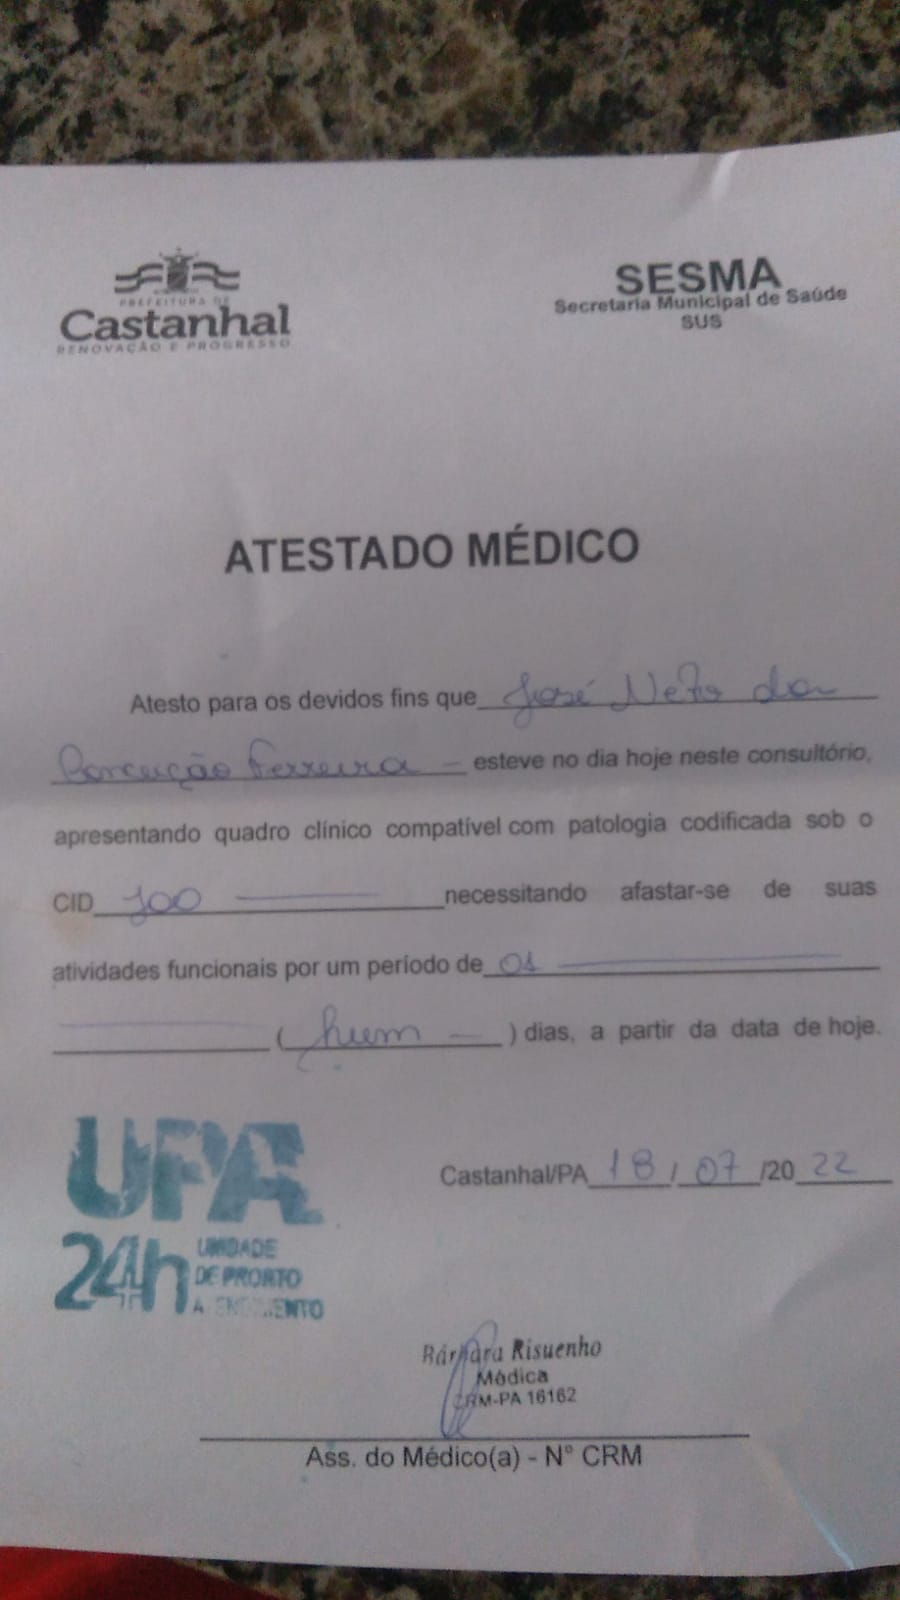 PREFEITURA DE
Castanhal
RENOVAÇÃO E PROGRESSO
SESMA
Secretaria Municipal de Saúde
SUS
ATESTADO MÉDICO
Atesto para os devidos fins que José Neto da
Conceição Ferreira - esteve no dia hoje neste consultório,
apresentando quadro clínico compatível com patologia codificada sob o
CID J00 necessitando afastar-se de suas
atividades funcionais por um período de 01
( hum - ) dias, a partir da data de hoje.
Castanhal/PA 18 / 07 /20 22
UPA
24h UNIDADE
DE PRONTO
ATENDIMENTO
Bárbara Risuenho
Médica
CRM-PA 16162
Ass. do Médico(a) - N° CRM